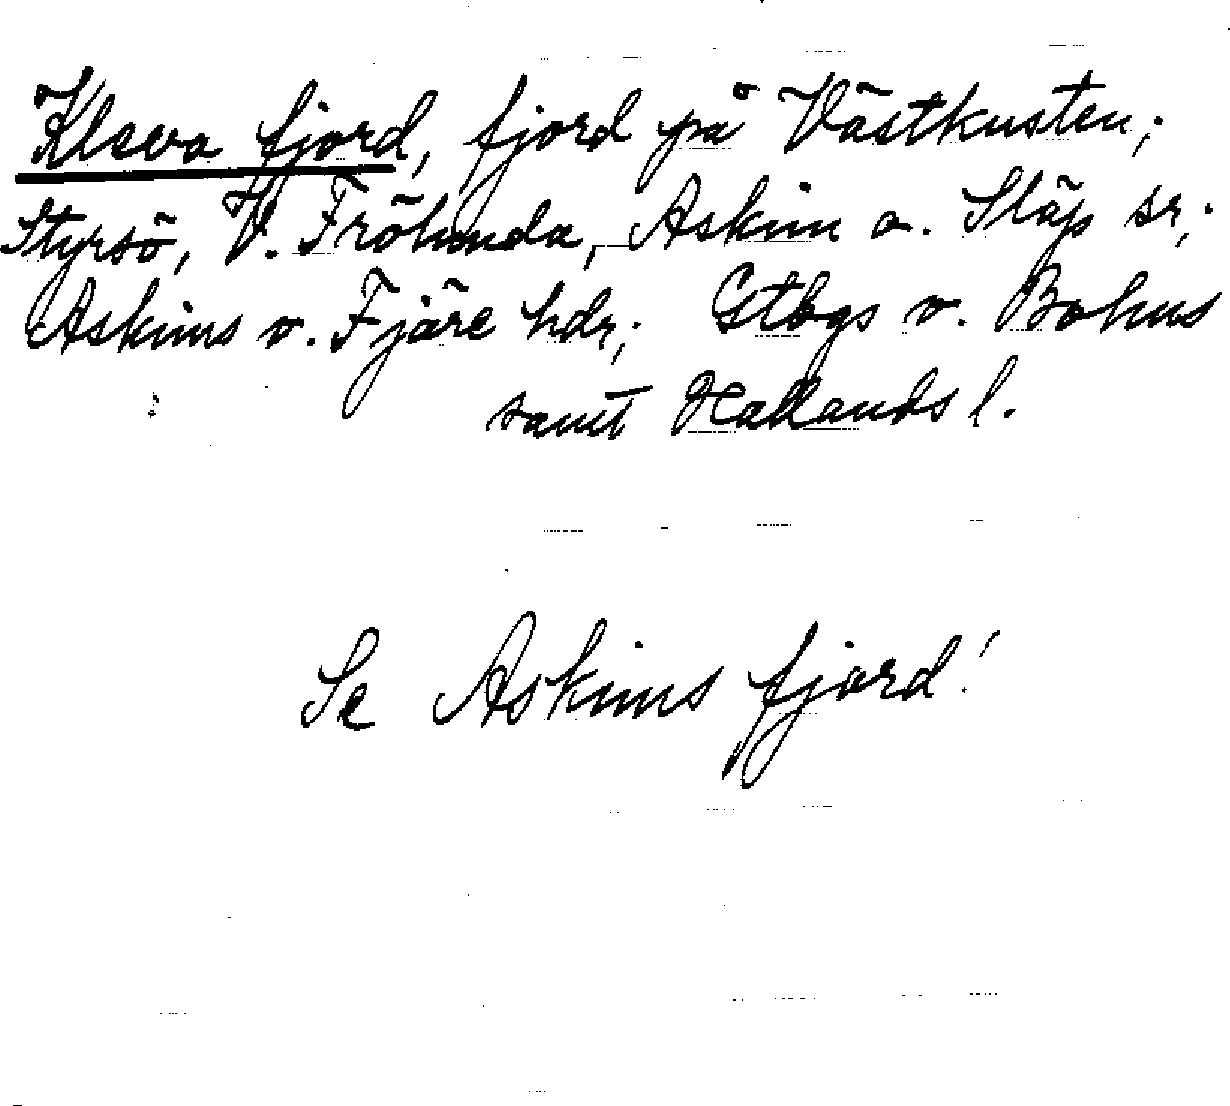 Kleva fjord, fjord på Västkusten;
Styrsö, V. Frölunda, Askim o. Släp sr;
Askims o. Fjäre hdr; Gtbgs o. Bohus
samt Hallands l.
Se Askims fjord!